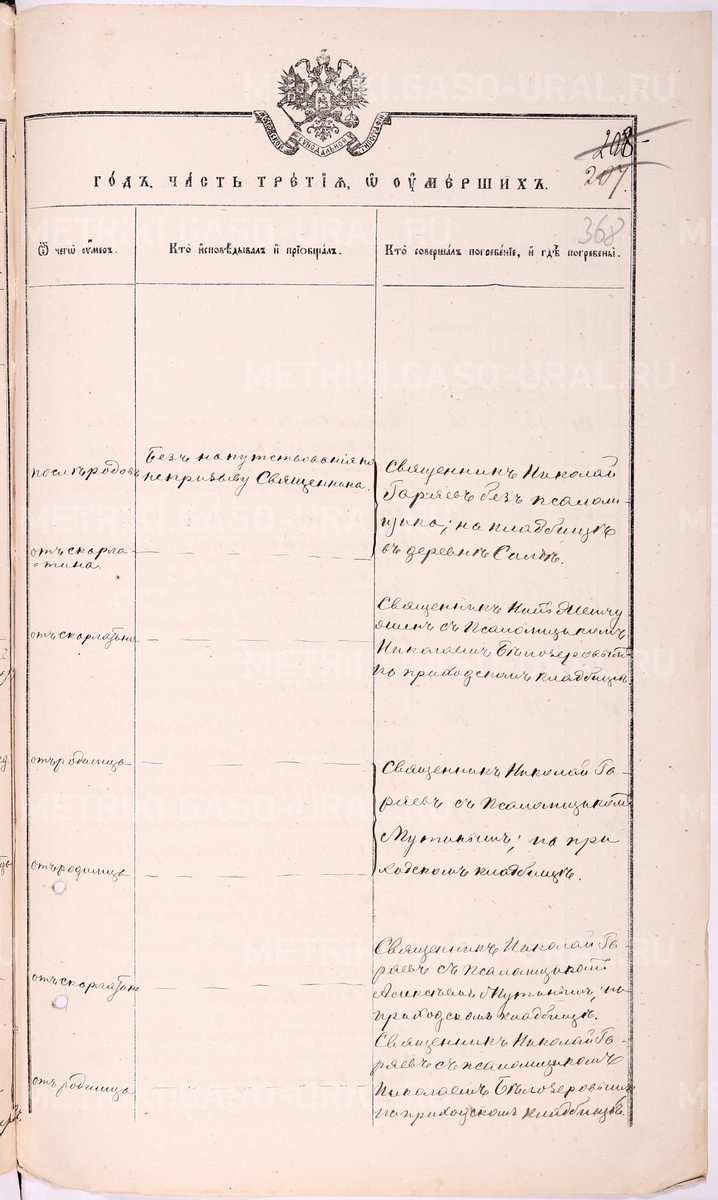 METRIKI.GASO-URAL.RU
208
207.
ГОДЪ, ЧАСТЬ ТРЕТІЯ, Ѿ ОУМЕРШИХЪ.
368
Ѿ чегѡ оумеръ.
Кто исповѣдывалъ и прїобщалъ.
Кто совершалъ погребенїе, и гдѣ погребены.
послѣ родовъ
Безъ напутствованія по
непризыву Священника.
Священникъ Николай
Гаряевъ безъ псалом
щика; на кладбищѣ
въ деревнѣ Салкѣ.
отъ скарла
тина.
Священникъ
съ Псаломщикомъ
Николаемъ Бѣлозеровымъ
на приходскомъ кладбищѣ
отъ скарлатины
отъ родимца
Священникъ Николай Га-
ряевъ съ Псаломщикомъ
Мутинымъ; на при
ходскомъ кладбищѣ.
отъ родимца
Священникъ Николай Га-
ряевъ съ псаломщикомъ
Алексѣемъ Мутинымъ; на
приходскомъ кладбищѣ.
отъ скарлатины
Священникъ Николай Га-
ряевъ съ псаломщикомъ
Николаемъ Бѣлозеровымъ
на приходскомъ кладбищѣ.
отъ родимца